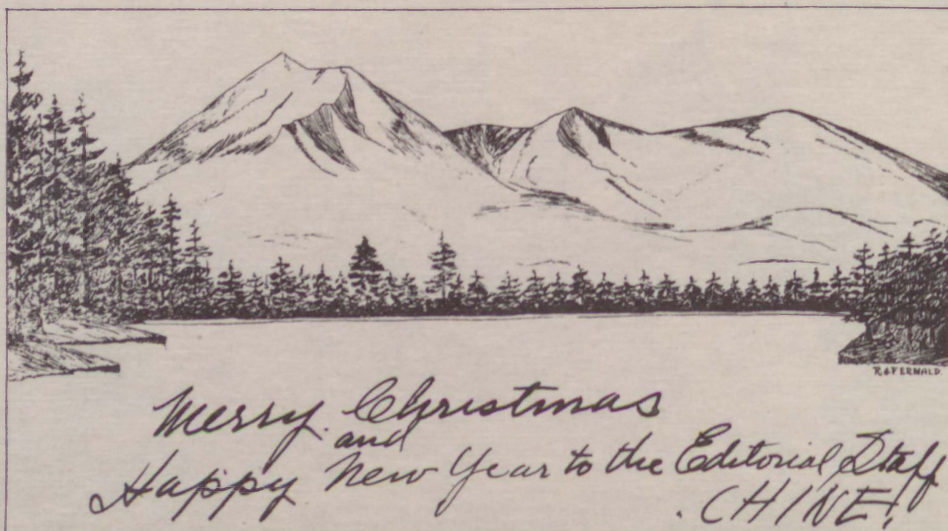 R.G FERNALD
Merry Christmas
and
Happy New Year to the Editorial Staff
CHINE!